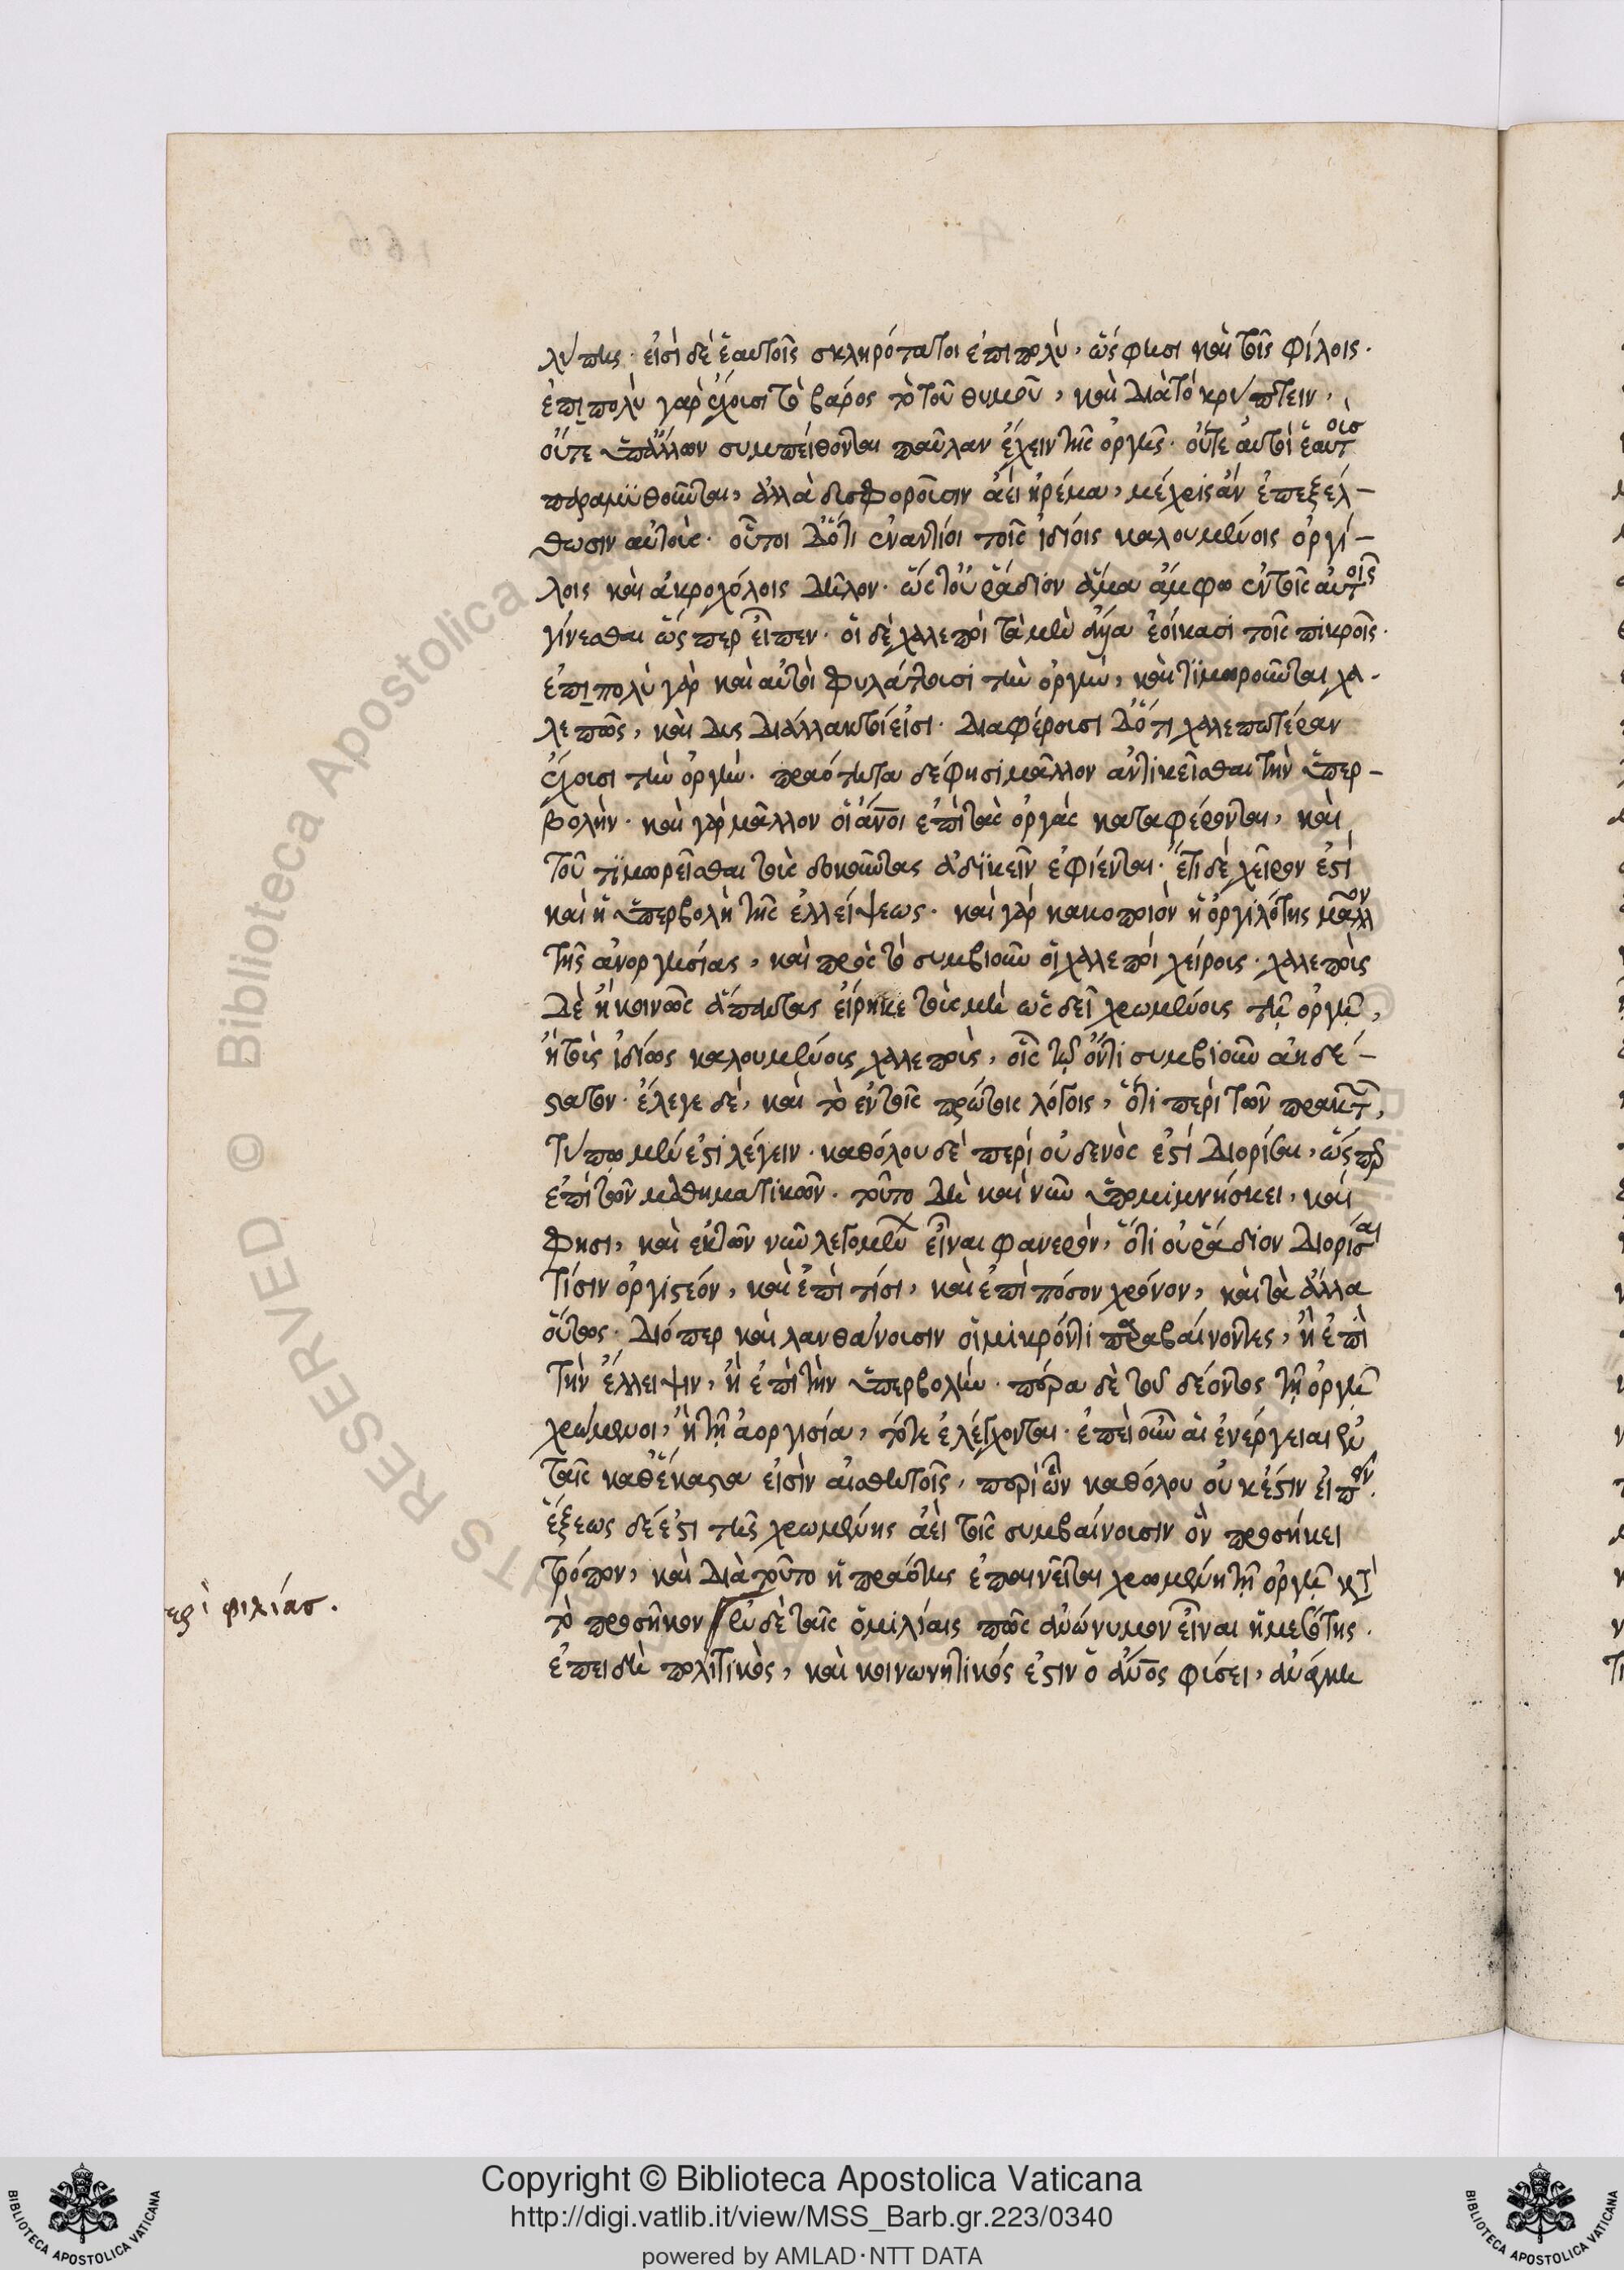 λύπης· εἰσὶ δὲ ἑαυτοῖς σκληρότατοι ἐπιπολὺ, ὥς φησι καὶ τοῖς φίλοις·
ἐπιπολὺ γὰρ ἔχουσι τὸ βάρος τὸ τοῦ θυμοῦ, καὶ διὰ τὸ κρύπτειν,
οὔτε ὑπ' ἄλλων συμπείθονται παῦλαν ἔχειν τῆς ὀργῆς· οὔτε αὐτοὶ ἑαυτοὺς
παραμυθοῦνται, ἀλλὰ δυσφοροῦσιν ἀεὶ ἠρέμα, μέχρις ἂν ἐπεξέλ-
θωσιν αὐτοῖς· οὗτοι δ' ὅτι ἐναντίοι τοῖς ἰδίοις καλουμένοις ὀργί-
λοις καὶ ἀκροχόλοις δῆλον· ὥστ' οὐ ῥάδιον ἅμα ἄμφω ἐν τοῖς αὐτοῖς
γίνεσθαι ὥς περ εἶπεν· οἱ δὲ χαλεποὶ τὰ μὲν ἐοίκασι τοῖς πικροῖς·
ἐπιπολὺ γὰρ καὶ αὐτοὶ φυλάττουσι τὴν ὀργὴν, καὶ τιμωροῦνται χα-
λεπῶς, καὶ δυσδιάλλακτοί εἰσι· διαφέρουσι δ' ὅτι χαλεπωτέραν
ἔχουσι τὴν ὀργὴν· πραότητα δέ φησι μᾶλλον ἀντικεῖσθαι τὴν ὑπερ-
βολὴν· καὶ γὰρ μᾶλλον οἱ ἄνοι ἐπὶ τὰς ὀργὰς καταφέρονται, καὶ
τοῦ τιμωρεῖσθαι τοὺς δοκοῦντας ἀδικεῖν ἐφίενται· ἔτι δὲ χεῖρον ἐστὶ
καὶ ἡ ὑπερβολὴ τῆς ἐλλείψεως· καὶ γὰρ κακοποιὸν ἡ ὀργιλότης μᾶλλον
τῆς ἀνοργησίας, καὶ πρὸς τὸ συμβιοῦν οἱ χαλεποὶ χείρους· χαλεποὺς
δὲ ἢ κοινῶς ἅπαντας εἴρηκε τοὺς μὴ ὡς δεῖ χρωμένους τῇ ὀργῇ,
ἢ τοὺς ἰδίως καλουμένους χαλεποὺς, οἷς τῷ ὄντι συμβιοῦν ἀηδέ-
στατον· ἔλεγε δὲ, καὶ τὸ ἐν τοῖς πρώτοις λόγοις, ὅτι περὶ τῶν πρακτ,
τύπῳ μέν ἐστι λέγειν· καθόλου δὲ περὶ οὐδενὸς ἐστὶ διορίσαι, ὥς περ
ἐπὶ τῶν μαθηματικῶν· τοῦτο δὴ καὶ νῦν ὑπομιμνήσκει, καὶ
φησι, καὶ ἐκ τῶν νῦν λεγομένων εἶναι φανερὸν, ὅτι οὐ ῥάδιον διορίσαι
τίσιν ὀργιστέον, καὶ ἐπὶ τίσι, καὶ ἐπὶ πόσον χρόνον, καὶ τὰ ἄλλα
οὕτως· διόπερ καὶ λανθάνουσιν οἱ μικρόν τι παραβαίνοντες, ἢ ἐπὶ
τὴν ἔλλειψιν, ἢ ἐπὶ τὴν ὑπερβολὴν· πόρρω δὲ τοῦ δέοντος τῇ ὀργῇ
χρώμενοι, ἢ τῇ ἀοργισίᾳ, τότε ἐλέγχονται· ἐπεὶ οὖν αἱ ἐνέργειαι ἐν
τοῖς καθέκαστα εἰσὶν αἰσθητοῖς, περὶ ὧν καθόλου οὐκ ἔστιν εἰπεῖν·
ἕξεως δέ ἐστι τῆς χρωμένης ἀεὶ τοῖς συμβαίνουσιν ὃν προσήκει
τρόπον, καὶ διὰ τοῦτο ἡ πραότης ἐπαινεῖται χρωμένη τῇ ὀργῇ κατὰ
τὸ προσῆκον ἐν δὲ ταῖς ὁμιλίαις πῶς ἀνώνυμον εἶναι ἡ μεσότης·
ἐπειδὴ πολιτικὸς, καὶ κοινωνητικός ἐστιν ὁ ἄνος φύσει, ἀνάγκη
ερὶ φιλίας.
Copyright © Biblioteca Apostolica Vaticana
http://digi.vatlib.it/view/MSS_Barb.gr.223/0340
powered by AMLAD·NTT DATA